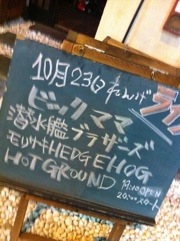 10月23日 れんげ
ライ
ビックママ
潜水艦ブラザーズ
モリサキHEDGEHOG
HOTGROUND
19:30 OPEN
20:00 スタート